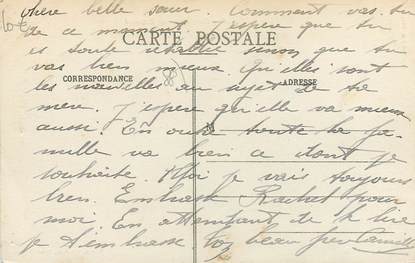 chère belle sœur comment vas tu
de ce moment. J'espère que tu
CARTE POSTALE
es toute rétablie ainsi que tu
vas bien mieux. Quelles sont
CORRESPONDANCE
ADRESSE
les nouvelles au sujet de ta
mère. J'espère qu'elle va mieux
aussi. En toute ta fa-
mille va bien ce dont je
souhaite. Moi je vais toujours
bien. Embrasse Rachel pour
moi. En attendant de te lire
je t'embrasse ton beau frère Camille